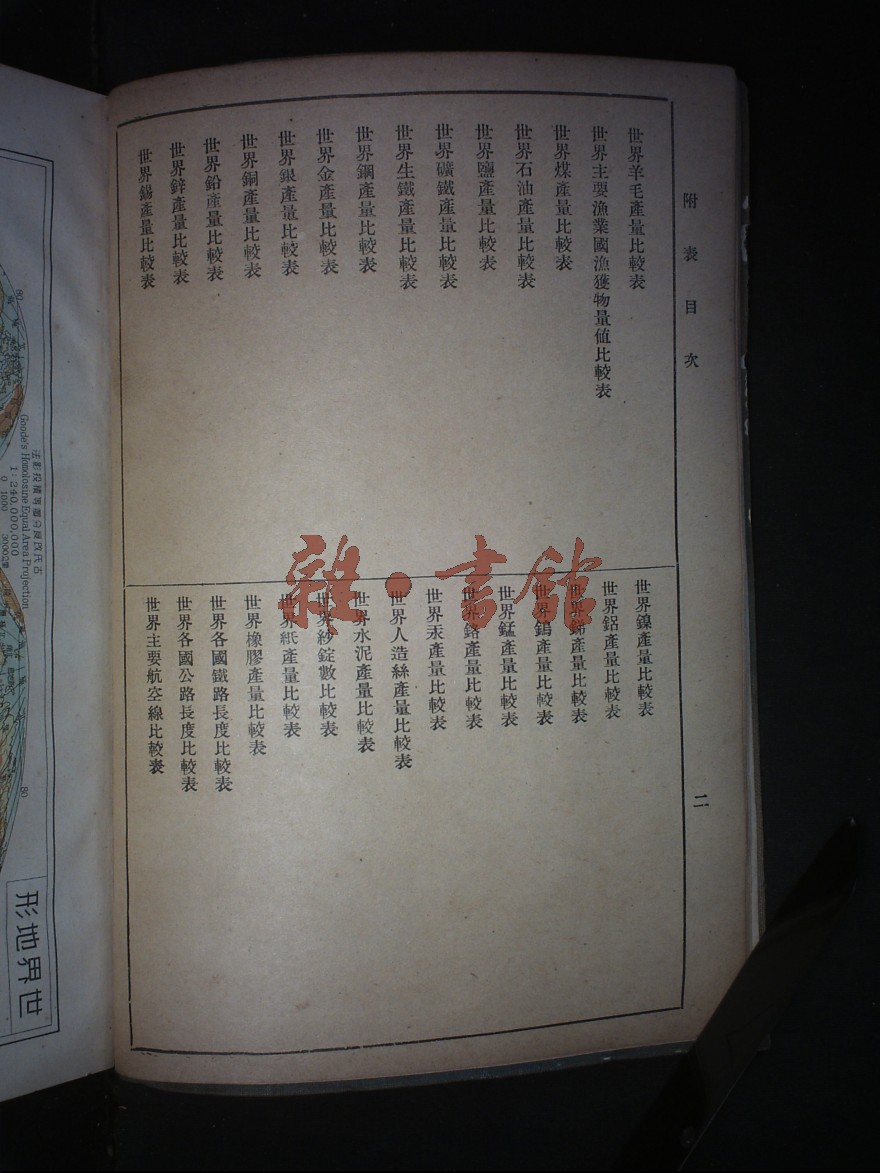 附表目次
世界羊毛產量比較表
世界主要漁業國漁獲物量値比較表
世界煤產量比較表
世界石油產量比較表
世界鹽產量比較表
世界礦鐵產量比較表
世界生鐵產量比較表
世界鋼產量比較表
世界金產量比較表
世界銀產量比較表
世界銅產量比較表
世界鉛產量比較表
世界鋅產量比較表
世界錫產量比較表
世界鎳產量比較表
世界鋁產量比較表
世界銻產量比較表
世界鎢產量比較表
世界錳產量比較表
世界鉻產量比較表
世界汞產量比較表
世界人造絲產量比較表
世界水泥產量比較表
世界紗錠數比較表
世界紙產量比較表
世界橡膠產量比較表
世界各國鐵路長度比較表
世界各國公路長度比較表
世界主要航空線比較表
二
雜·書館
世界地形
古氏改良分瓣等積投影法
Goode's Homolosine Equal Area Projection
1:240,000,000
0 1000
80
80